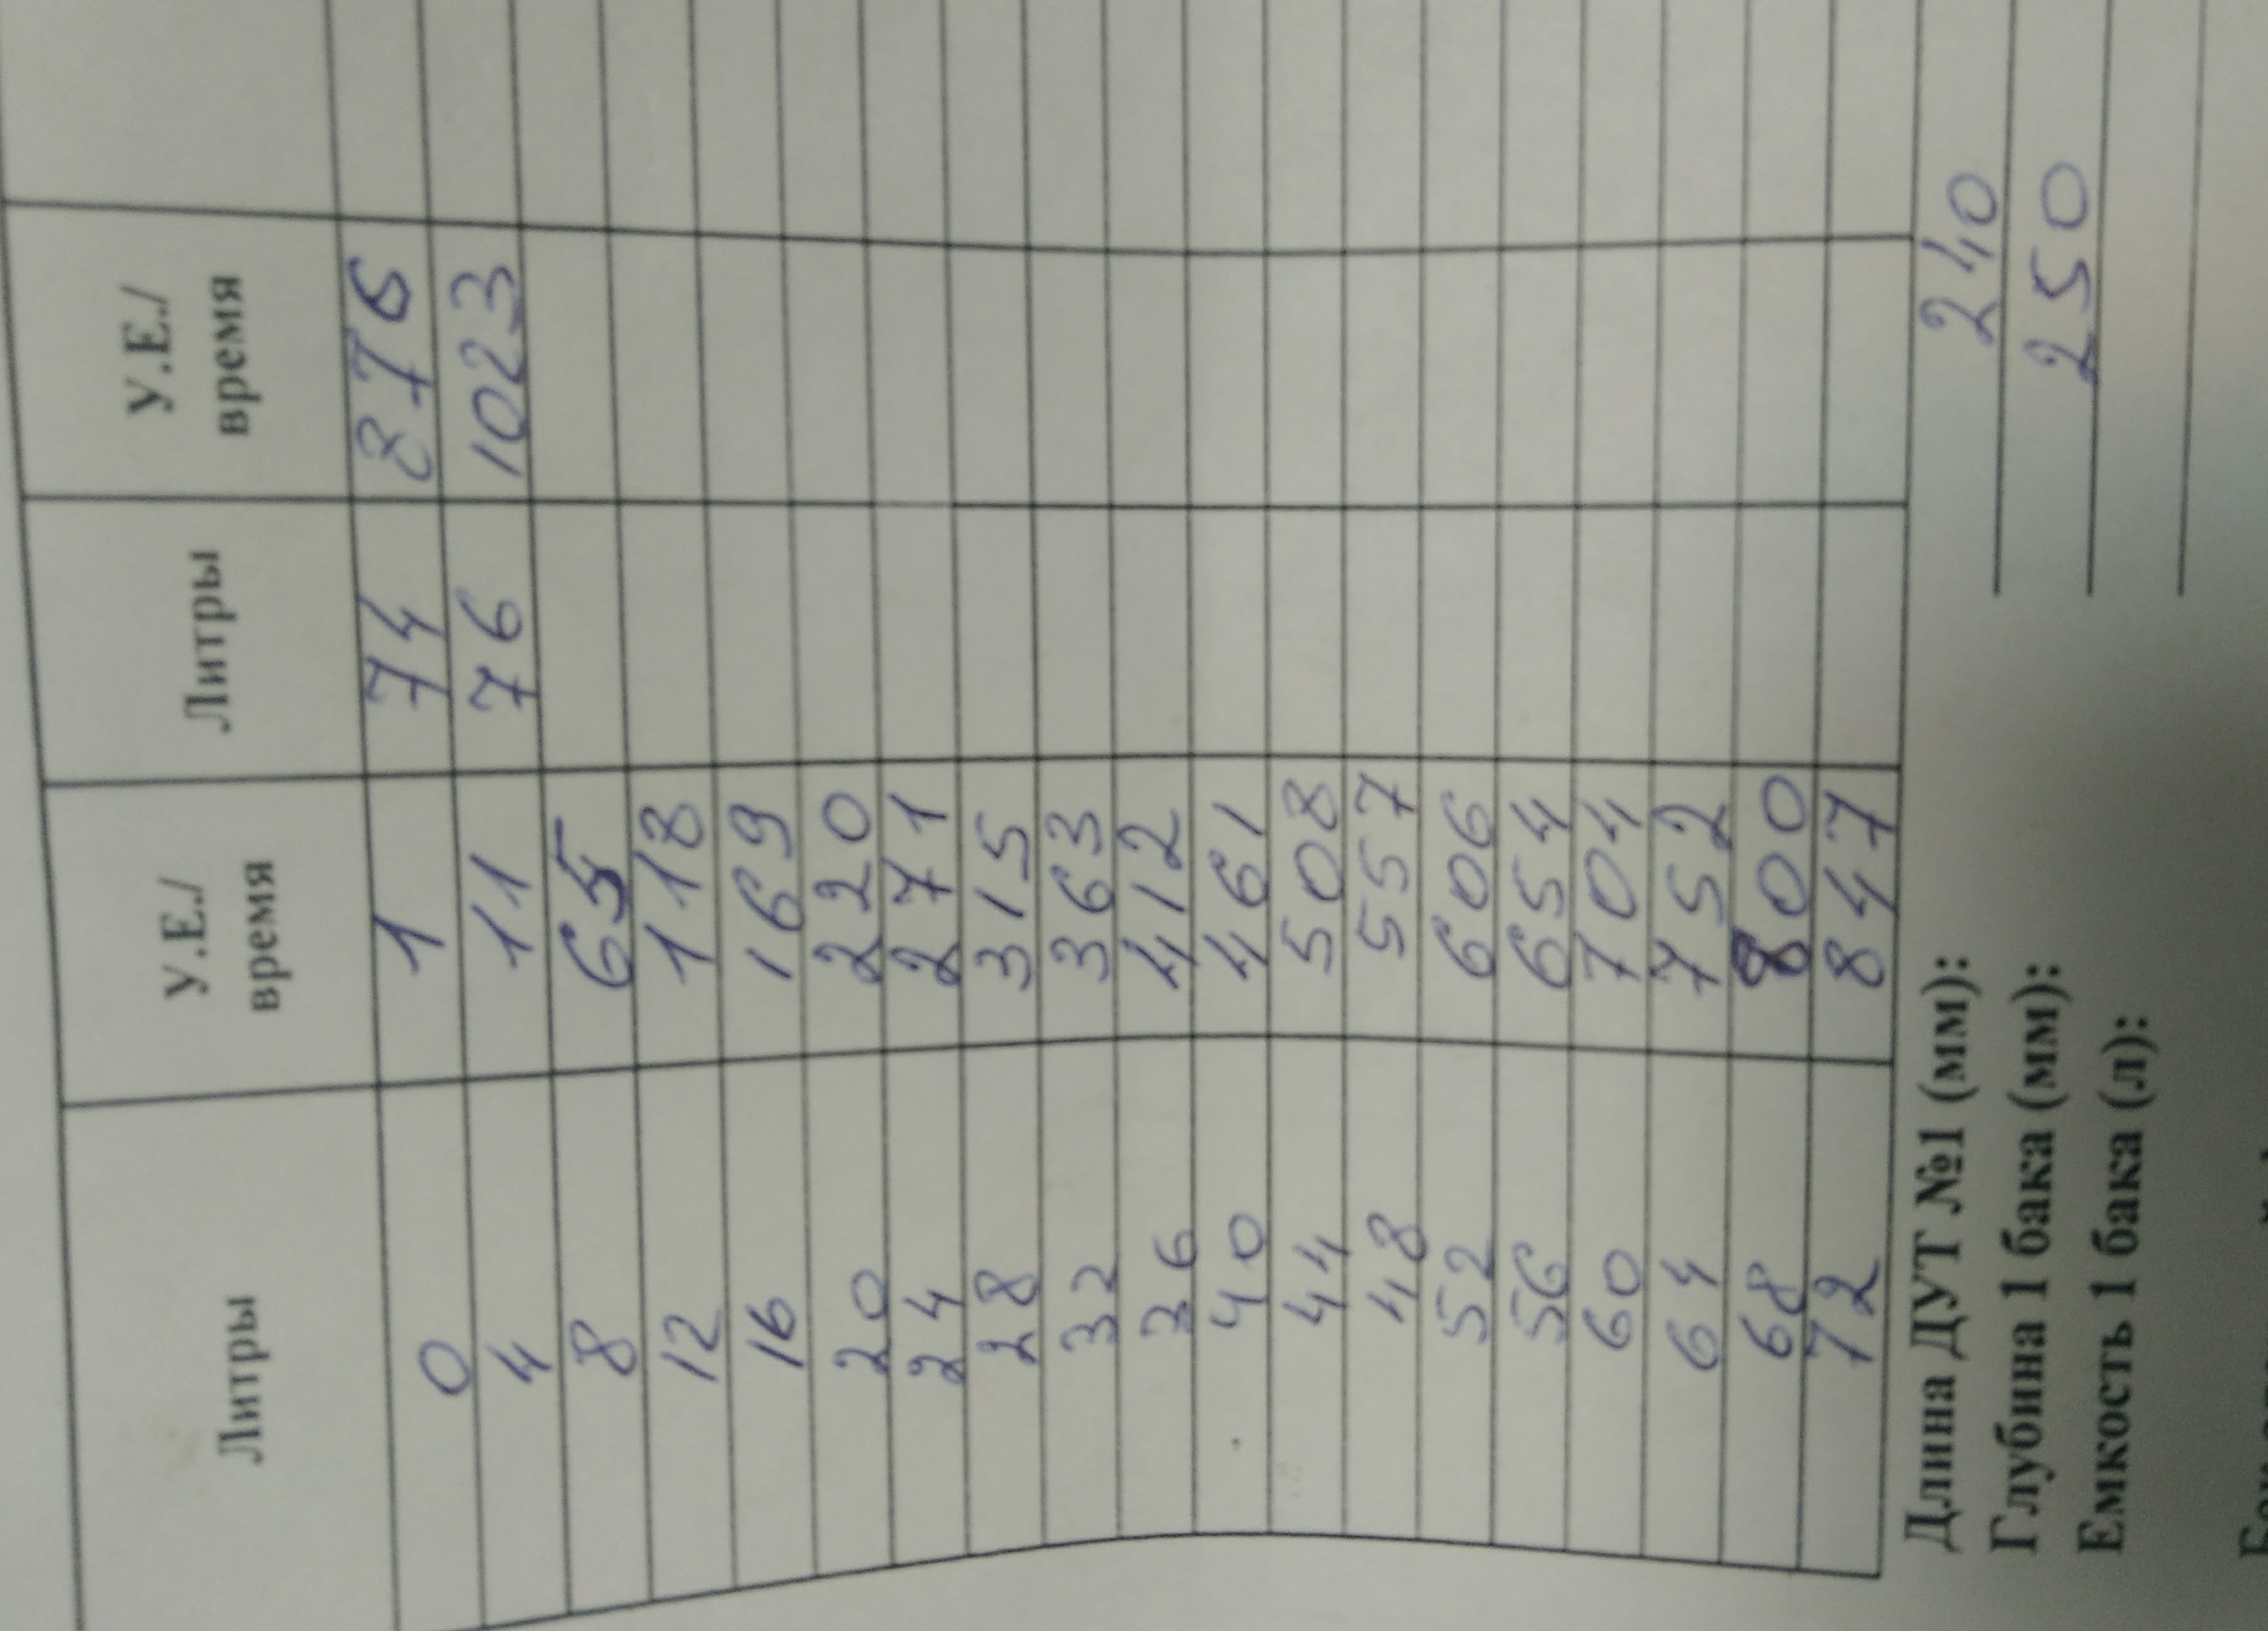 Литры У.Е./время Литры У.Е./время
0 1 74 876
4 11 76 1023
8 65
12 118
16 169
20 220
24 271
28 315
32 363
36 412
40 461
44 508
48 557
52 606
56 654
60 704
64 752
68 800
72 847
Длина ДУТ №1 (мм): 240
Глубина 1 бака (мм): 250
Емкость 1 бака (л):